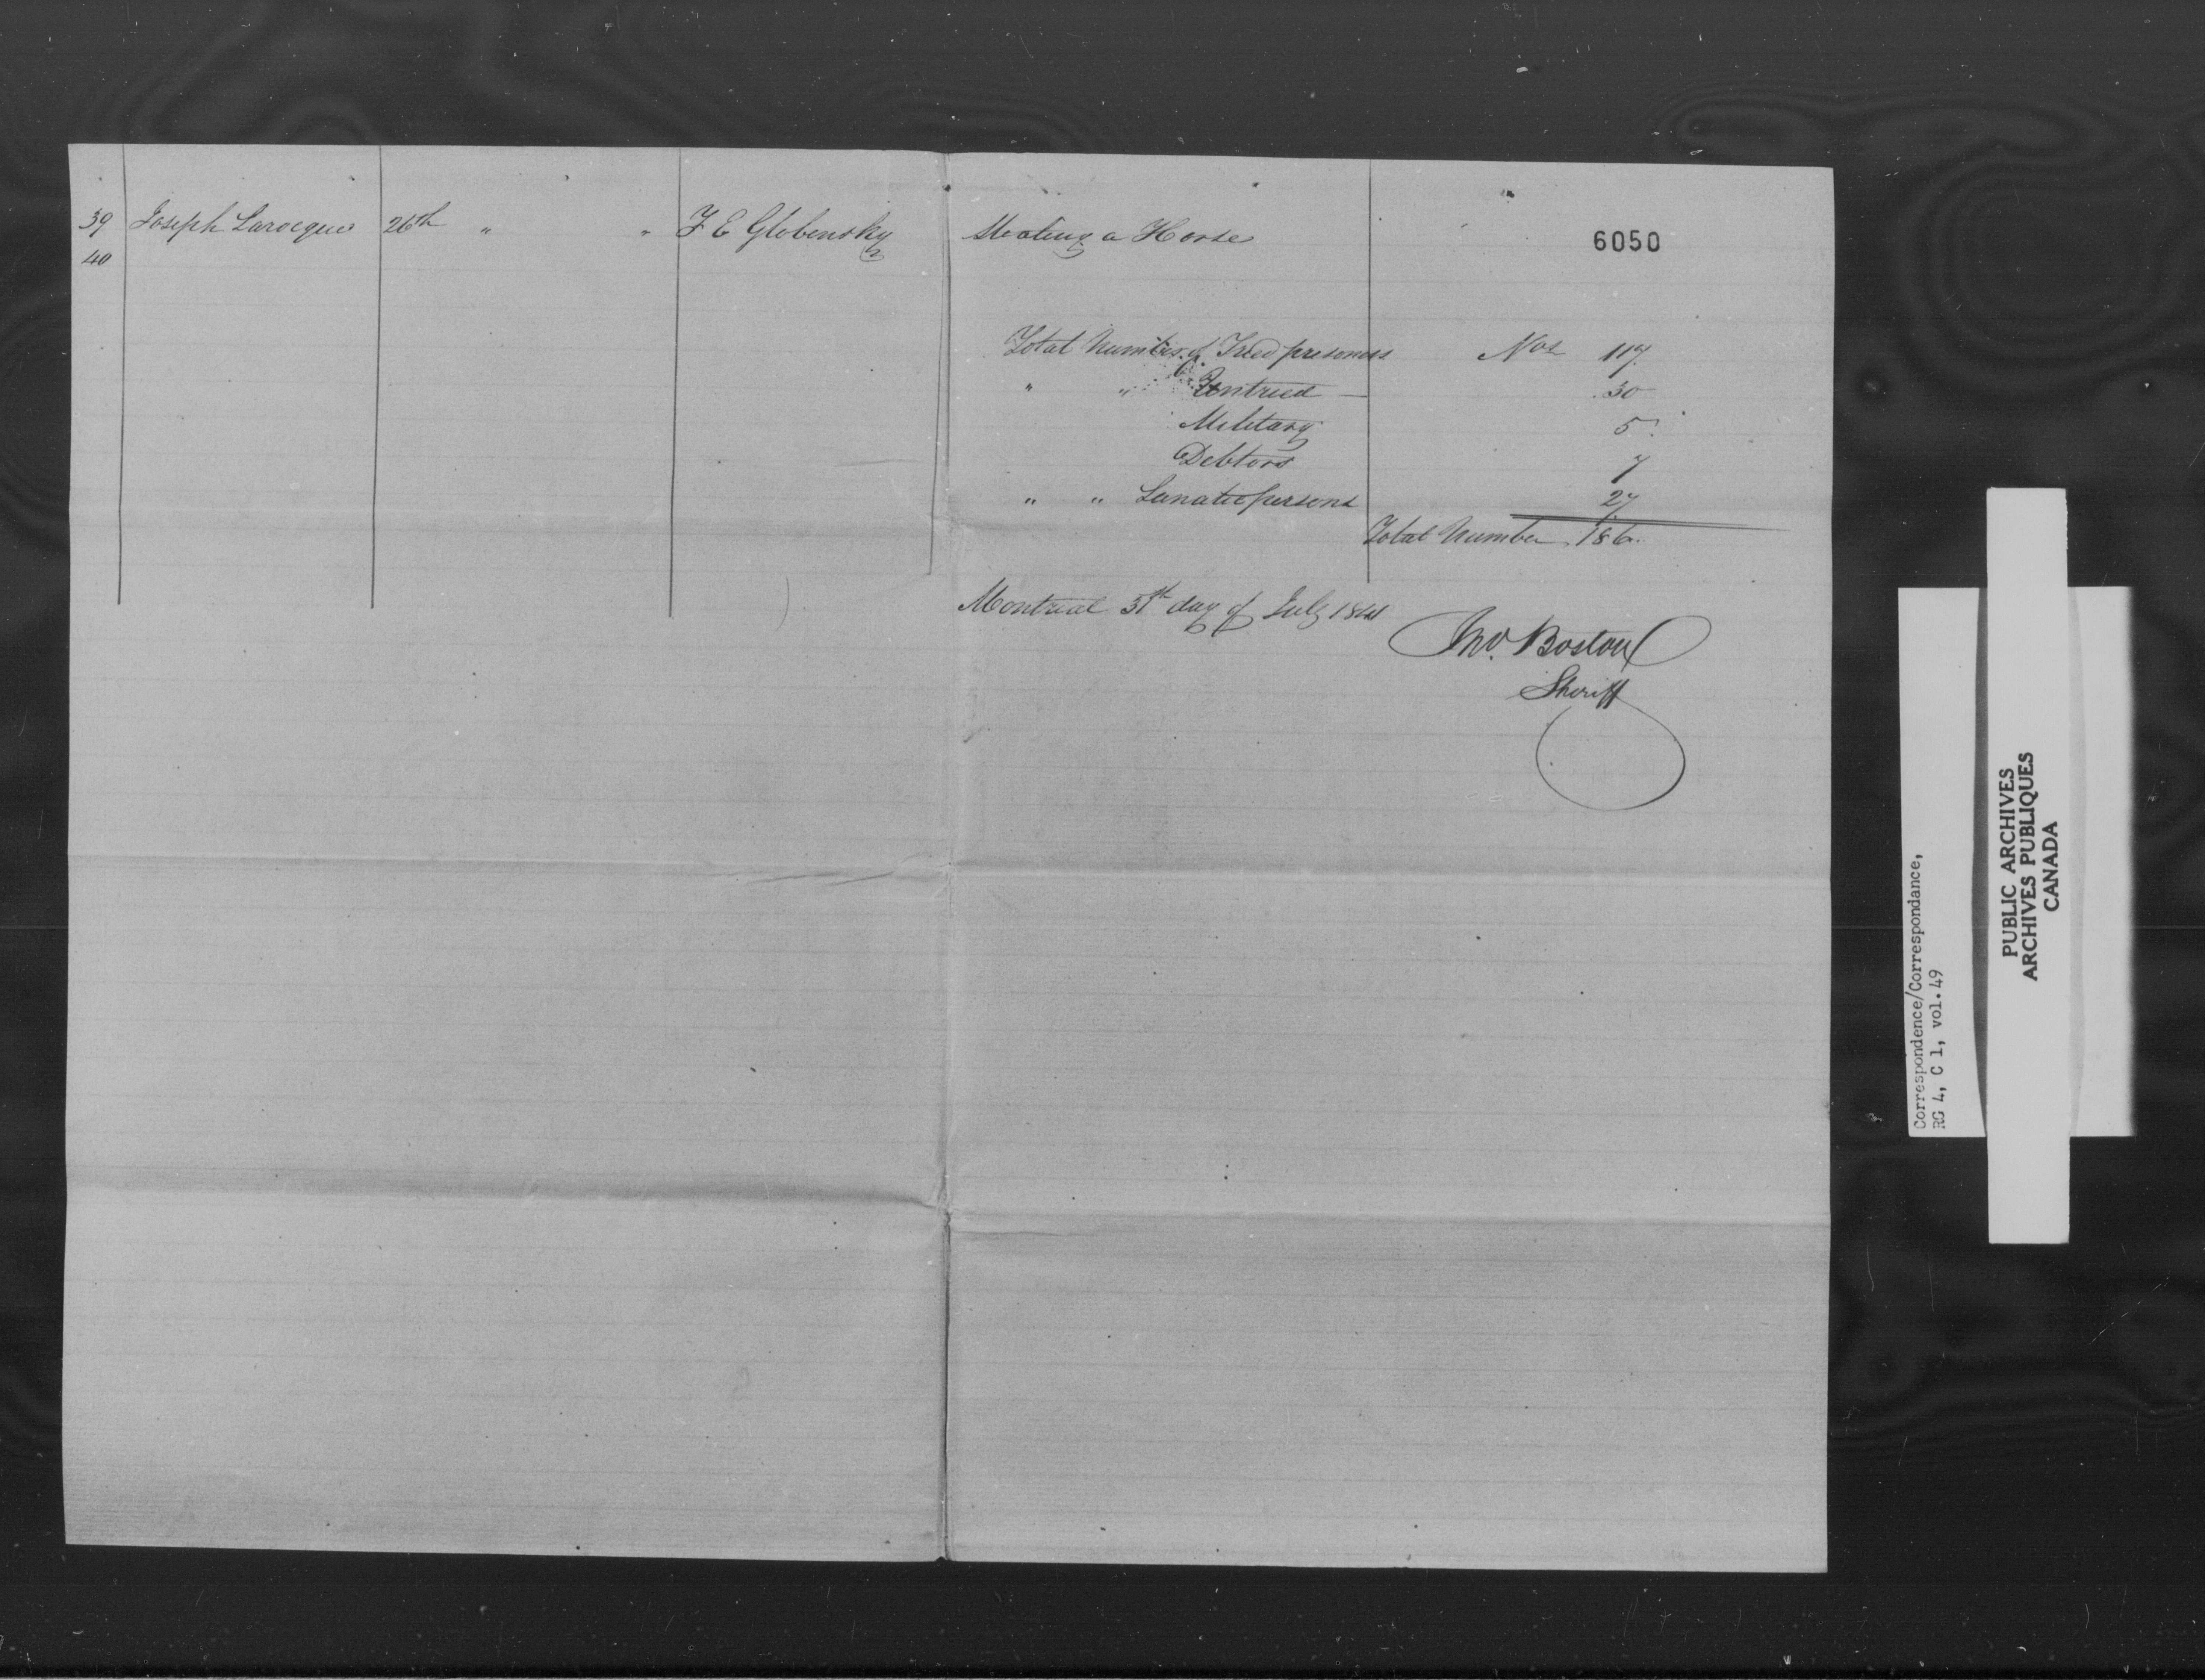 39 Joseph Larocque 26th " " F E Globensky Stealing a Horse
6050
40
Total Number of Tried prisoners Nos 117
" " Untried — 30
Military 5
Debtors 7
" " Lunatic persons 27
Total Number 186
Montreal 31th day of July 1841
Jno. Boston
Sheriff
Correspondence/Correspondance,
RG 4, C 1, vol.49
PUBLIC ARCHIVES
ARCHIVES PUBLIQUES
CANADA